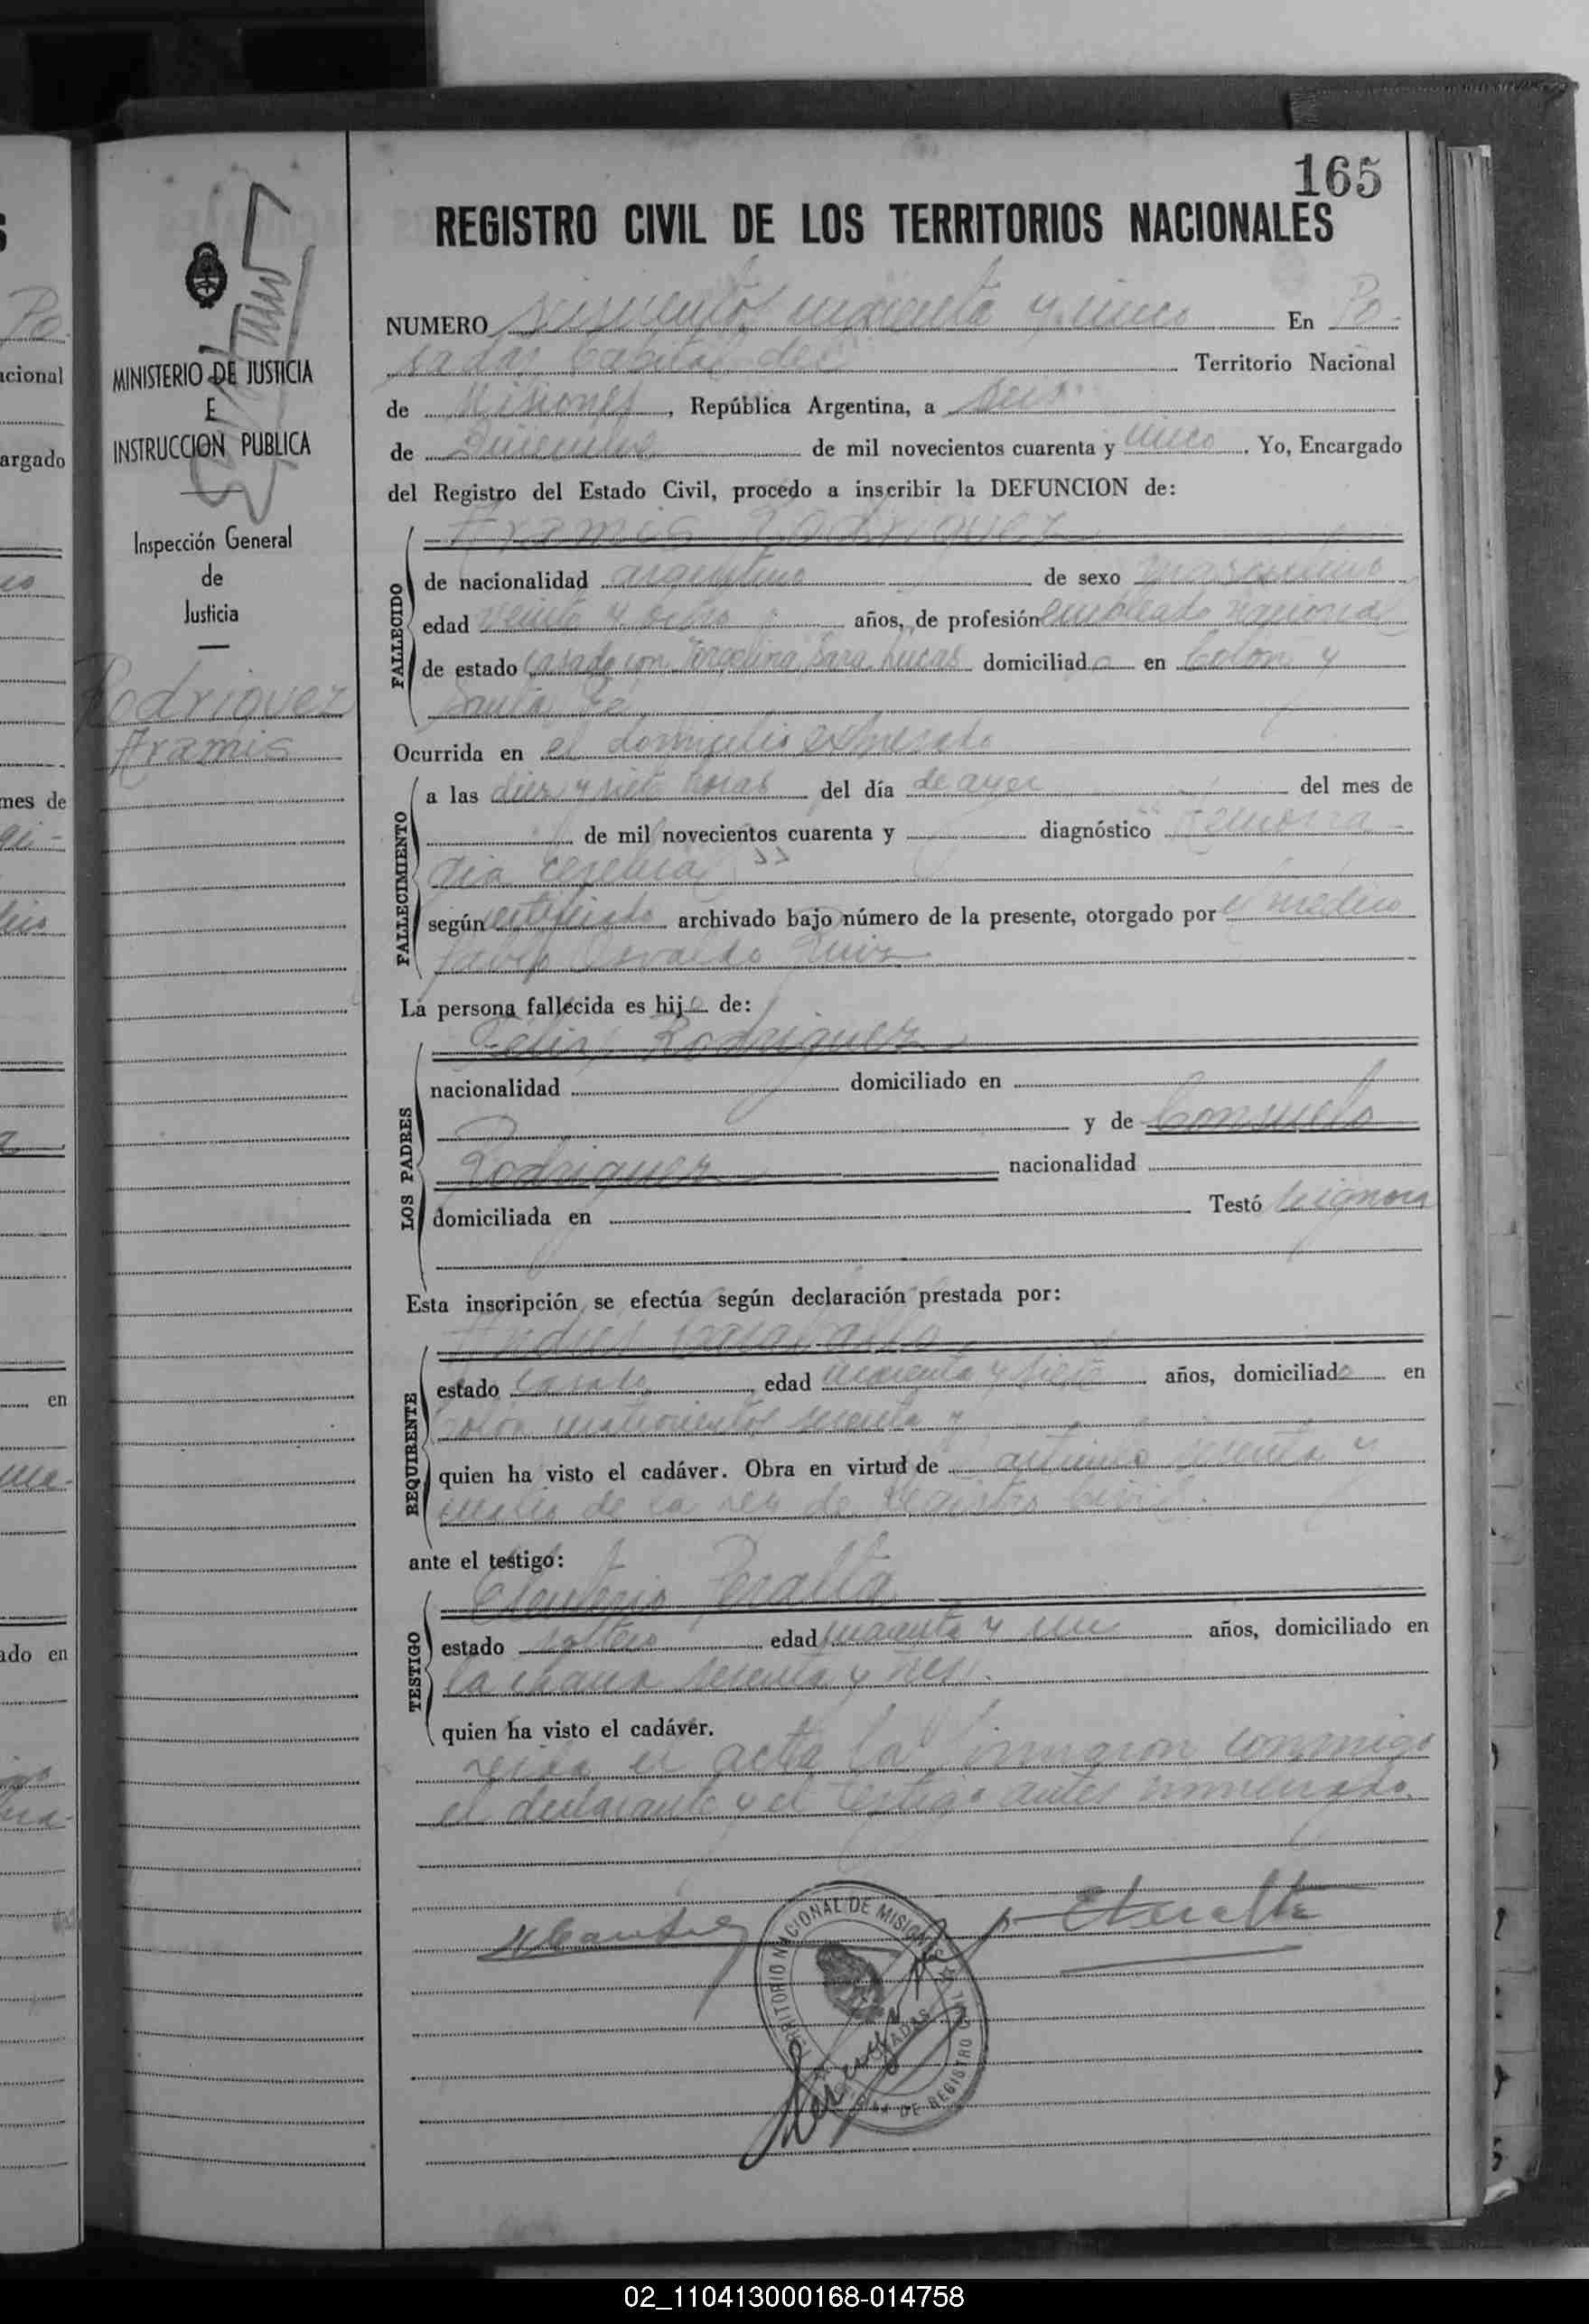 165
REGISTRO CIVIL DE LOS TERRITORIOS NACIONALES
MINISTERIO DE JUSTICIA
E
INSTRUCCION PUBLICA
Inspección General
de
Justicia
Rodriguez
Aramis
NUMERO seiscientos cuarenta y cinco En Po-
sadas Capital del Territorio Nacional
de Misiones, República Argentina, a seis
de Diciembre de mil novecientos cuarenta y cinco. Yo, Encargado
del Registro del Estado Civil, procedo a inscribir la DEFUNCION de:
Aramis Rodriguez
FALLECIDO
de nacionalidad argentino de sexo masculino
edad veinte y ocho años, de profesión empleado nacional
de estado casado con Angelina Sara Lucas domiciliado en Colon y
Santa Fé
Ocurrida en el domicilio expresado
FALLECIMIENTO
a las diez y siete horas del día de ayer del mes de
de mil novecientos cuarenta y diagnóstico "Hemorra-
gia cerebral"
según certificado archivado bajo número de la presente, otorgado por el médico
Osvaldo Ruiz
La persona fallecida es hijo de:
LOS PADRES
Felix Rodriguez
nacionalidad domiciliado en
y de Consuelo
Rodriguez nacionalidad
domiciliada en Testó se ignora
Esta inscripción se efectúa según declaración prestada por:
REQUIRENTE
Andres
estado casado, edad cuarenta y siete años, domiciliado en
Colón cuatrocientos sesenta y
quien ha visto el cadáver. Obra en virtud de artículo sesenta y
cuatro de la ley de Registro Civil.
ante el testigo:
TESTIGO
Eleuterio Peralta
estado soltero edad cuarenta y un años, domiciliado en
la chacra sesenta y tres.
quien ha visto el cadáver.
Leida el acta la firmaron conmigo
el declarante y el testigo antes nombrado.
EPeralta
TERRITORIO NACIONAL DE MISIONES
POSADAS
OFICINA DE REGISTRO CIVIL
acional
argado
mes de
en
ado en
02_110413000168-014758